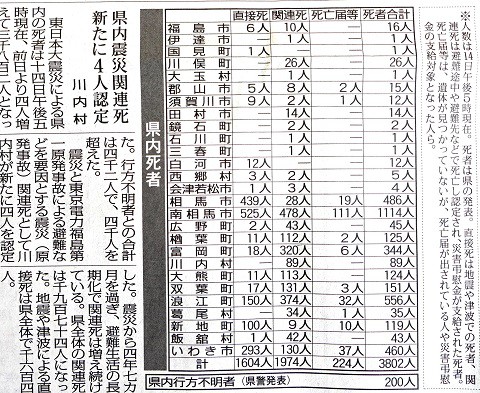 ※人数は14日午後5時現在。死者は県の発表。直接死は地震や津波での死者、関
連死は避難途中や避難先などで死亡し認定され、災害弔慰金が支給された死者。
死亡届等は、遺体が見つかっていないが、死亡届が出されている人や災害弔慰
金の支給対象となった人ら。
県内死者
直接死 関連死 死亡届等 死者合計
福島市 6人 10人 16人
伊達市 1人 1人
国見町 1人 1人
川俣町 26人 26人
大玉村 1人 1人
郡山市 5人 8人 2人 15人
須賀川市 9人 2人 1人 12人
田村市 14人 14人
鏡石町 2人 2人
石川町 1人 1人
三春町 1人 1人
白河市 12人 12人
西郷村 3人 2人 5人
会津若松市 1人 3人 4人
相馬市 439人 28人 19人 486人
南相馬市 525人 478人 111人 1114人
広野町 2人 43人 45人
楢葉町 11人 112人 2人 125人
富岡町 18人 320人 6人 344人
川内村 89人 89人
大熊町 11人 113人 124人
双葉町 17人 131人 3人 151人
浪江町 150人 374人 32人 556人
葛尾村 34人 1人 35人
新地町 100人 9人 10人 119人
飯舘村 1人 42人 43人
いわき市 293人 130人 37人 460人
計 1604人 1974人 224人 3802人
県内行方不明者(県警発表) 200人
県内震災関連死
新たに4人認定
川内村
東日本大震災による県
内の死者は十四日午後五
時現在、前日より四人増
えて三千八百二人となっ
た。行方不明者との合計
は四千二人で、四千人を
超えた。
震災と東京電力福島第
一原発事故による避難な
どを要因とする震災(原
発事故)関連死として川
内村が新たに四人を認定
した。震災から四年七カ
月を過ぎ、避難生活の長
期化で関連死は増え続け
ている。県全体の関連死
は千九百七十四人になっ
た。地震や津波による直
接死は県全体で千六百四
人。